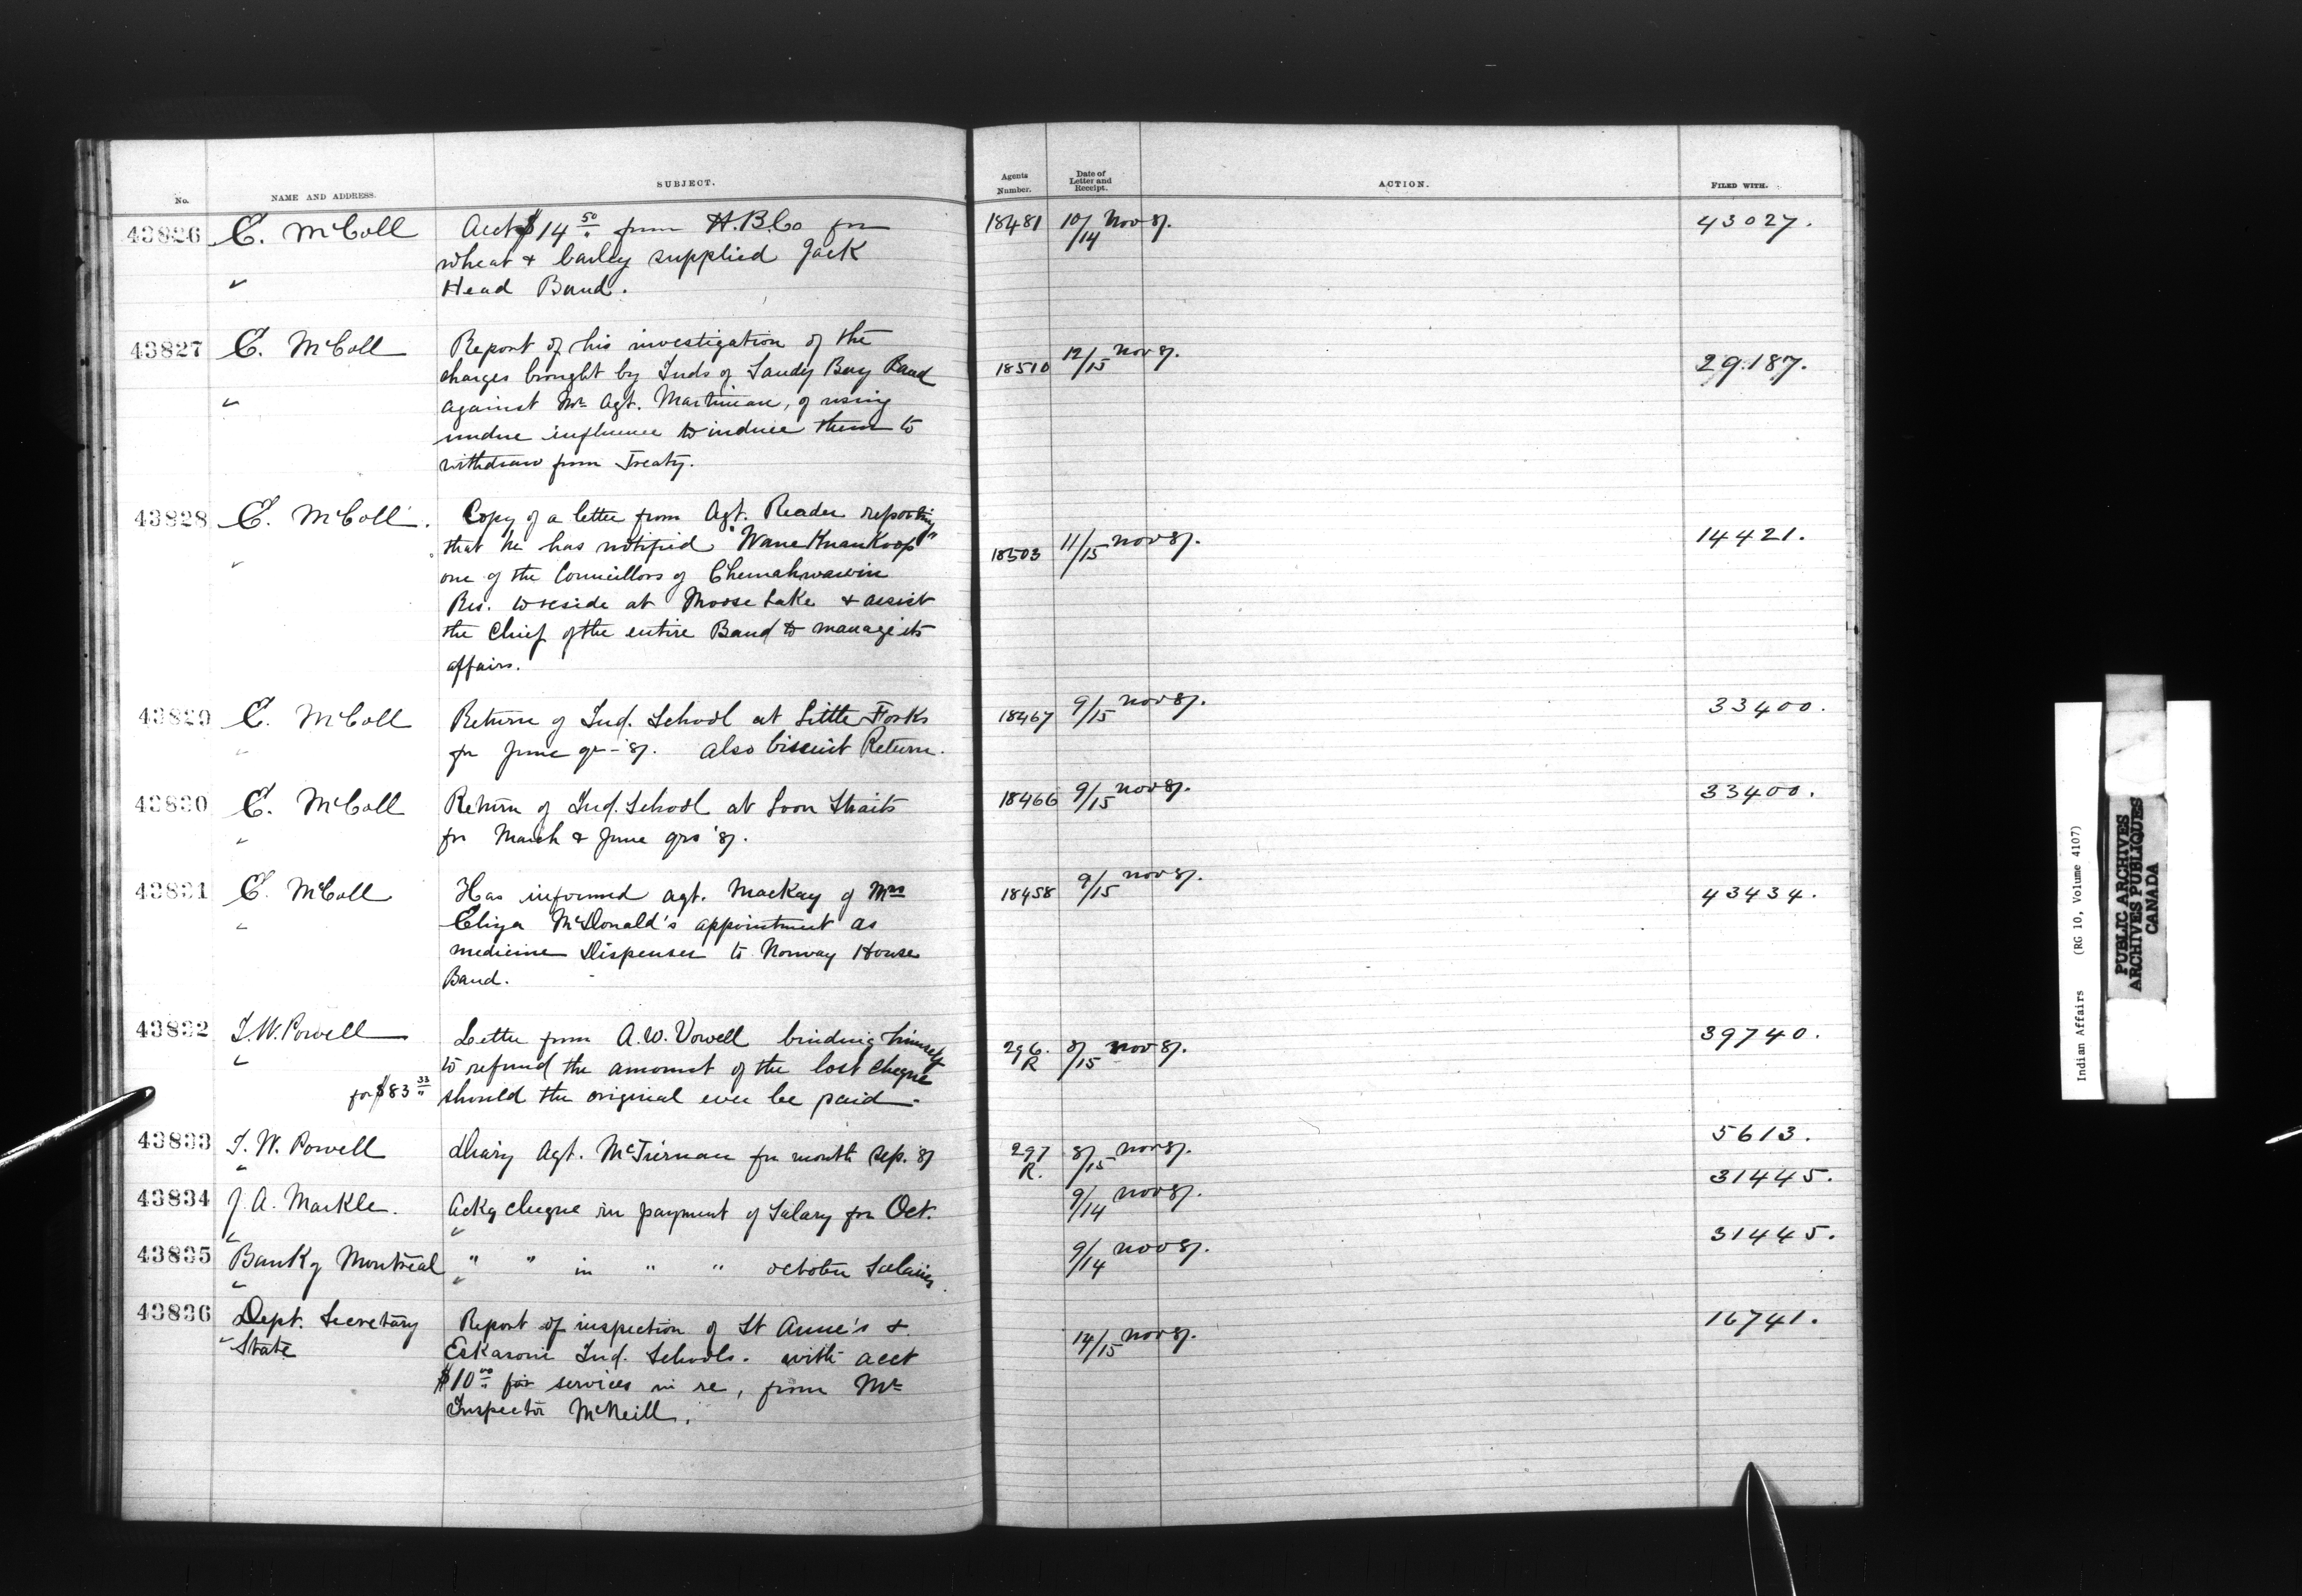 No. NAME AND ADDRESS. SUBJECT. Agents Number. Date of Letter and Receipt. ACTION. FILED WITH.
43826 E. McColl Acct $14 50 from H.B.Co for 18481 10/14 Nov 87. 43027.
wheat & barley supplied Jack
" Head Band.
43827 E. McColl Report of his investigation of the 18510 12/15 Nov 87. 29187.
charges brought by Inds of Sandy Bay Band
" against Mr Agt. Martineau, of using
undue influence to induce them to
withdraw from Treaty.
43828 E. McColl. Copy of a letter from Agt. Reader reporting 18503 11/15 Nov 87. 14421.
that he has notified "Wane Knan Koop"
" one of the Councillors of Chemahwawin
Res. to reside at Moose Lake & assist
the Chief of the entire Band to manage its
affairs.
43829 E. McColl Return of Ind. School at Little Forks 18467 9/15 Nov 87. 33400.
" for June qr - 87. Also biscuit Return.
43830 E. McColl Return of Ind. School at Loon Straits 18466 9/15 Nov 87. 33400.
" for March & June qrs '87.
43831 E. McColl Has informed Agt. Mackay of Mrs 18458 9/15 Nov 87. 43434.
" Eliza McDonald's appointment as
medicine Dispenser to Norway House
Band.
43832 I.W. Powell Letter from A.W. Vowell binding himself 296. R 8/15 Nov 87. 39740.
" to refund the amount of the lost cheque
for $83 33 should the original ever be paid.
43833 I.W. Powell Diary Agt. McTiernan for month Sep. '87 297 R. 8/15 Nov 87. 5613.
"
43834 J. A. Markle. Ackg cheque in payment of Salary for Oct. 9/14 Nov 87. 31445.
"
43835 Bank of Montreal " " in " " October Salaries. 9/14 Nov 87. 31445.
"
43836 Dept. Secretary Report of inspection of St Anne's & 14/15 Nov 87. 16741.
" State Eskasoni Ind. Schools. with acct
$10 00 for services in re, from Mr
Inspector McNeill.
Indian Affairs (RG 10, Volume 4107)
PUBLIC ARCHIVES
ARCHIVES PUBLIQUES
CANADA